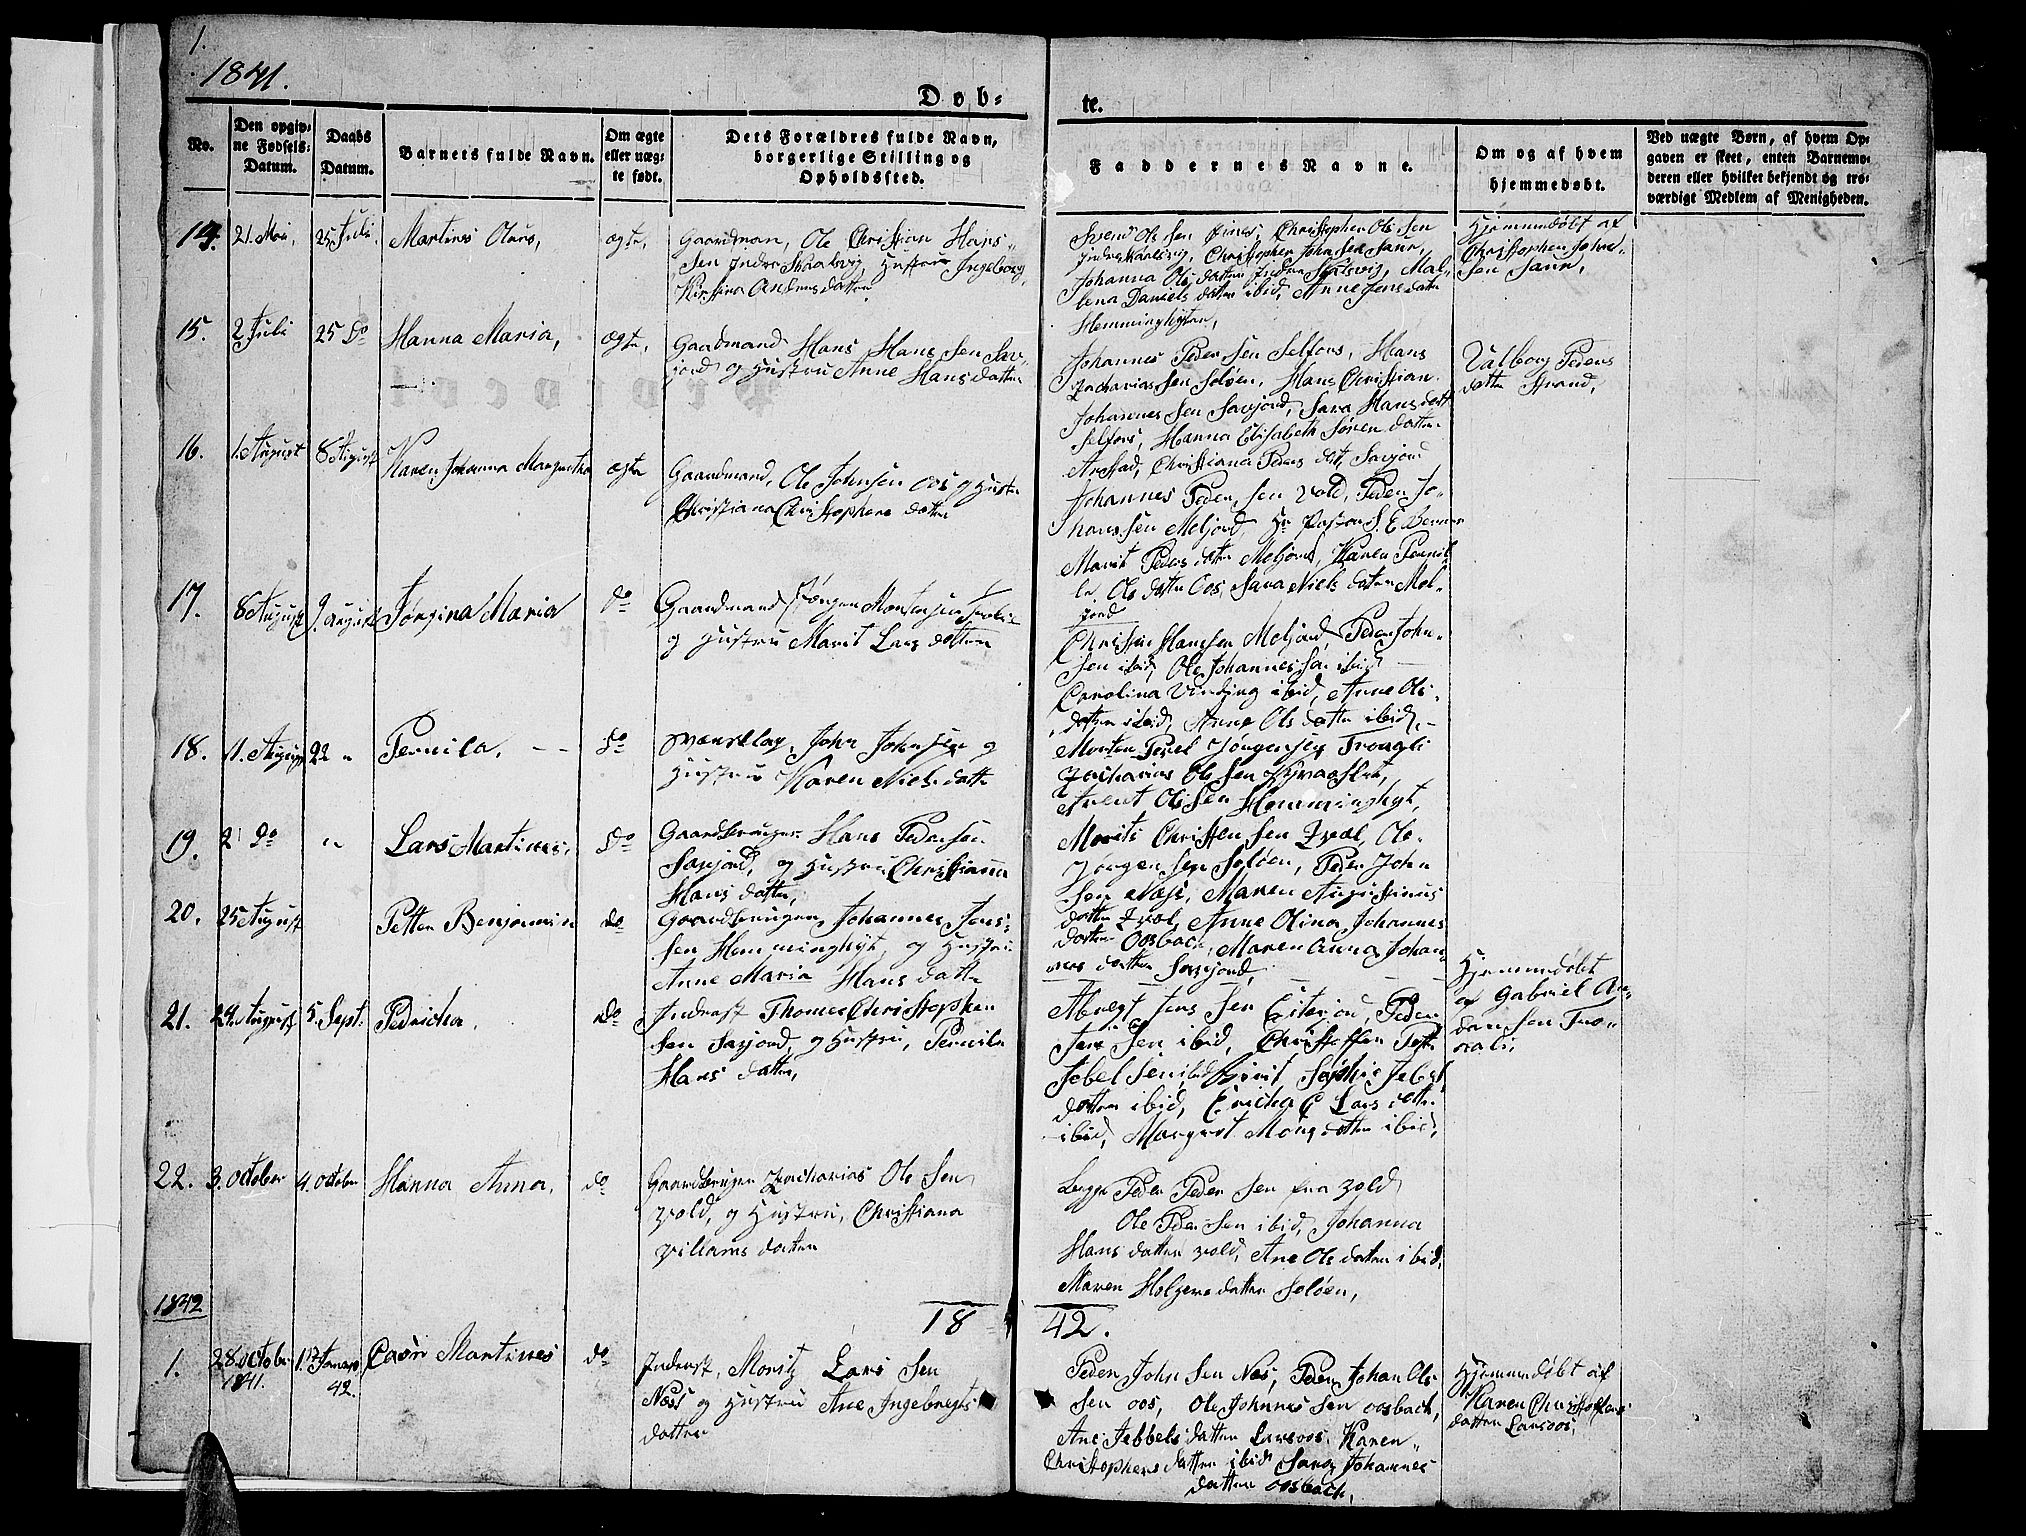 1.
1841.
Døb-
te.
No.
Den opgiv-
ne Fødsels-
Datum.
Daabs
Datum.
Barnets fulde Navn.
Om ægte
eller uæg-
te født.
Dets Forældres fulde Navn,
borgerlige Stilling og
Opholdssted.
Faddernes Navne.
Om og af hvem
hjemmedøbt.
Ved uægte Børn, af hvem Op-
gaven er skeet, enten Barnemo-
deren eller hvilket bekjendt og tro-
værdigt Medlem af Menigheden.
14. 21. Mai, 25 Juli. Martines Olaus, ægte,
Gaardman, Ole Christian Hans-
sen Indre og Hustrue Ingeborg
Andersdatter
Svend Ols Sen Christopher Ols Sen
Christopher John Sen Sann,
Johanna Ols datter Indre Mal-
lena Daniels datter ibid, Anne Jens datter
Hemminghÿten,
Hjemmedöbt af
Christopher
Sen Sann,
15. 2 Juli 25 do Hanna Maria, ægte,
Gaardmand Hans Hans Sen Sax-
jord og Hustru Anne Hans datter
Johannes Peder Sen Selfors, Hans
Zacharias Sen Soløen, Hans Christian
Johannes Sen Saxjord, Sara Hans datt
Selfors, Hanna Elisabeth Sören datter
Christiana Peders dat, Saxjord
Valborg Peders
datter Strand,
16. 1. August 8 August Karen Johanna Margretha ægte
Gaardmand, Ole Johnsen Oos og Hustru
Christiana Christophers datter
Johannes Peder Sen Vold, Peder Jo-
hans Sen Meljord, Hr Pastor S. E.
Marit Peders datter Meljord, Karen Pernil-
le Ols datter Oos, Sara Niels datter Mel-
jord
17. 8 August 9. August Jörgina Maria do
Gaardmand Jörgen Mortensen
og Hustru Marit Lars datter
Christen Hansen Meljord, Peder John-
Sen ibid, Ole Johannes Sen ibid
Carolina Vinding ibid, Anne Ols-
datter ibid, Anne Ols datter ibid,
18. 11. August 22 " Pernila. do
John Johnsen og
Hustrue Karen Niels datter
Morten Jörgensen
Zacharias Ole Sen
Arent Ol Sen Hemminghÿt,
19. 2 do " Lars Martines, do
Gaardbruger Hans Pedersen
Saxjord, og Hustru Christianna
Hans datter,
Morits Christen Sen Ole
Jörgen Sen Soløen, Peder John
Sen Næss, Maren Augustinus
datter Anne Olina Johannes
datter Oosback, Maren Anna Johan-
nes datter Saxjord,
20. 25 August Petter Benjamin do
Gaardbruger Johannes Jens-
sen Hemminghÿt, og Hustru
Anne Maria Hans datter
21. 24. August 5. Sept. Pedricha. do
Inderst Thomas Christopher
Sen Saxjord, og Hustru, Pernila
Hans datter,
Jens Sen Peder
Jens Sen ibid, Christoffer
Jebel Sen ibid, Berit Sophie Jebel
datter ibid, Ericha Lars datter
ibid, Margret Mons datter ibid,
Hjemmedöbt
af Gabriel An-
dersen
22. 3. October 4. October Hanna Anna, do
Gaardbruger Zacharias Ole Sen
Vold, og Hustru, Christiana
Viliams datter
Begge Peder Peder Sen fra Vold
Ole Peder Sen ibid, Johanna
Hans datter Vold, Ane Ols datter ibid,
Maren Holgers datter Soløen,
1842
18 42.
1. 28 October 1841. Januar 42. Martines do
Inderst, Moritz Lars Sen
Næss og Hustru Ane Ingebregts
datter
Peder John Sen Næs, Peder Johan Ols
Sen Oos, Ole Johannes Sen Oosback,
Ane Jebbels datter Larsoos, Karen
Christophers datter ibid Sara Johannes
datter Oosback.
Hjemmedöbt af
Karen Christophers
datter Larsoos,